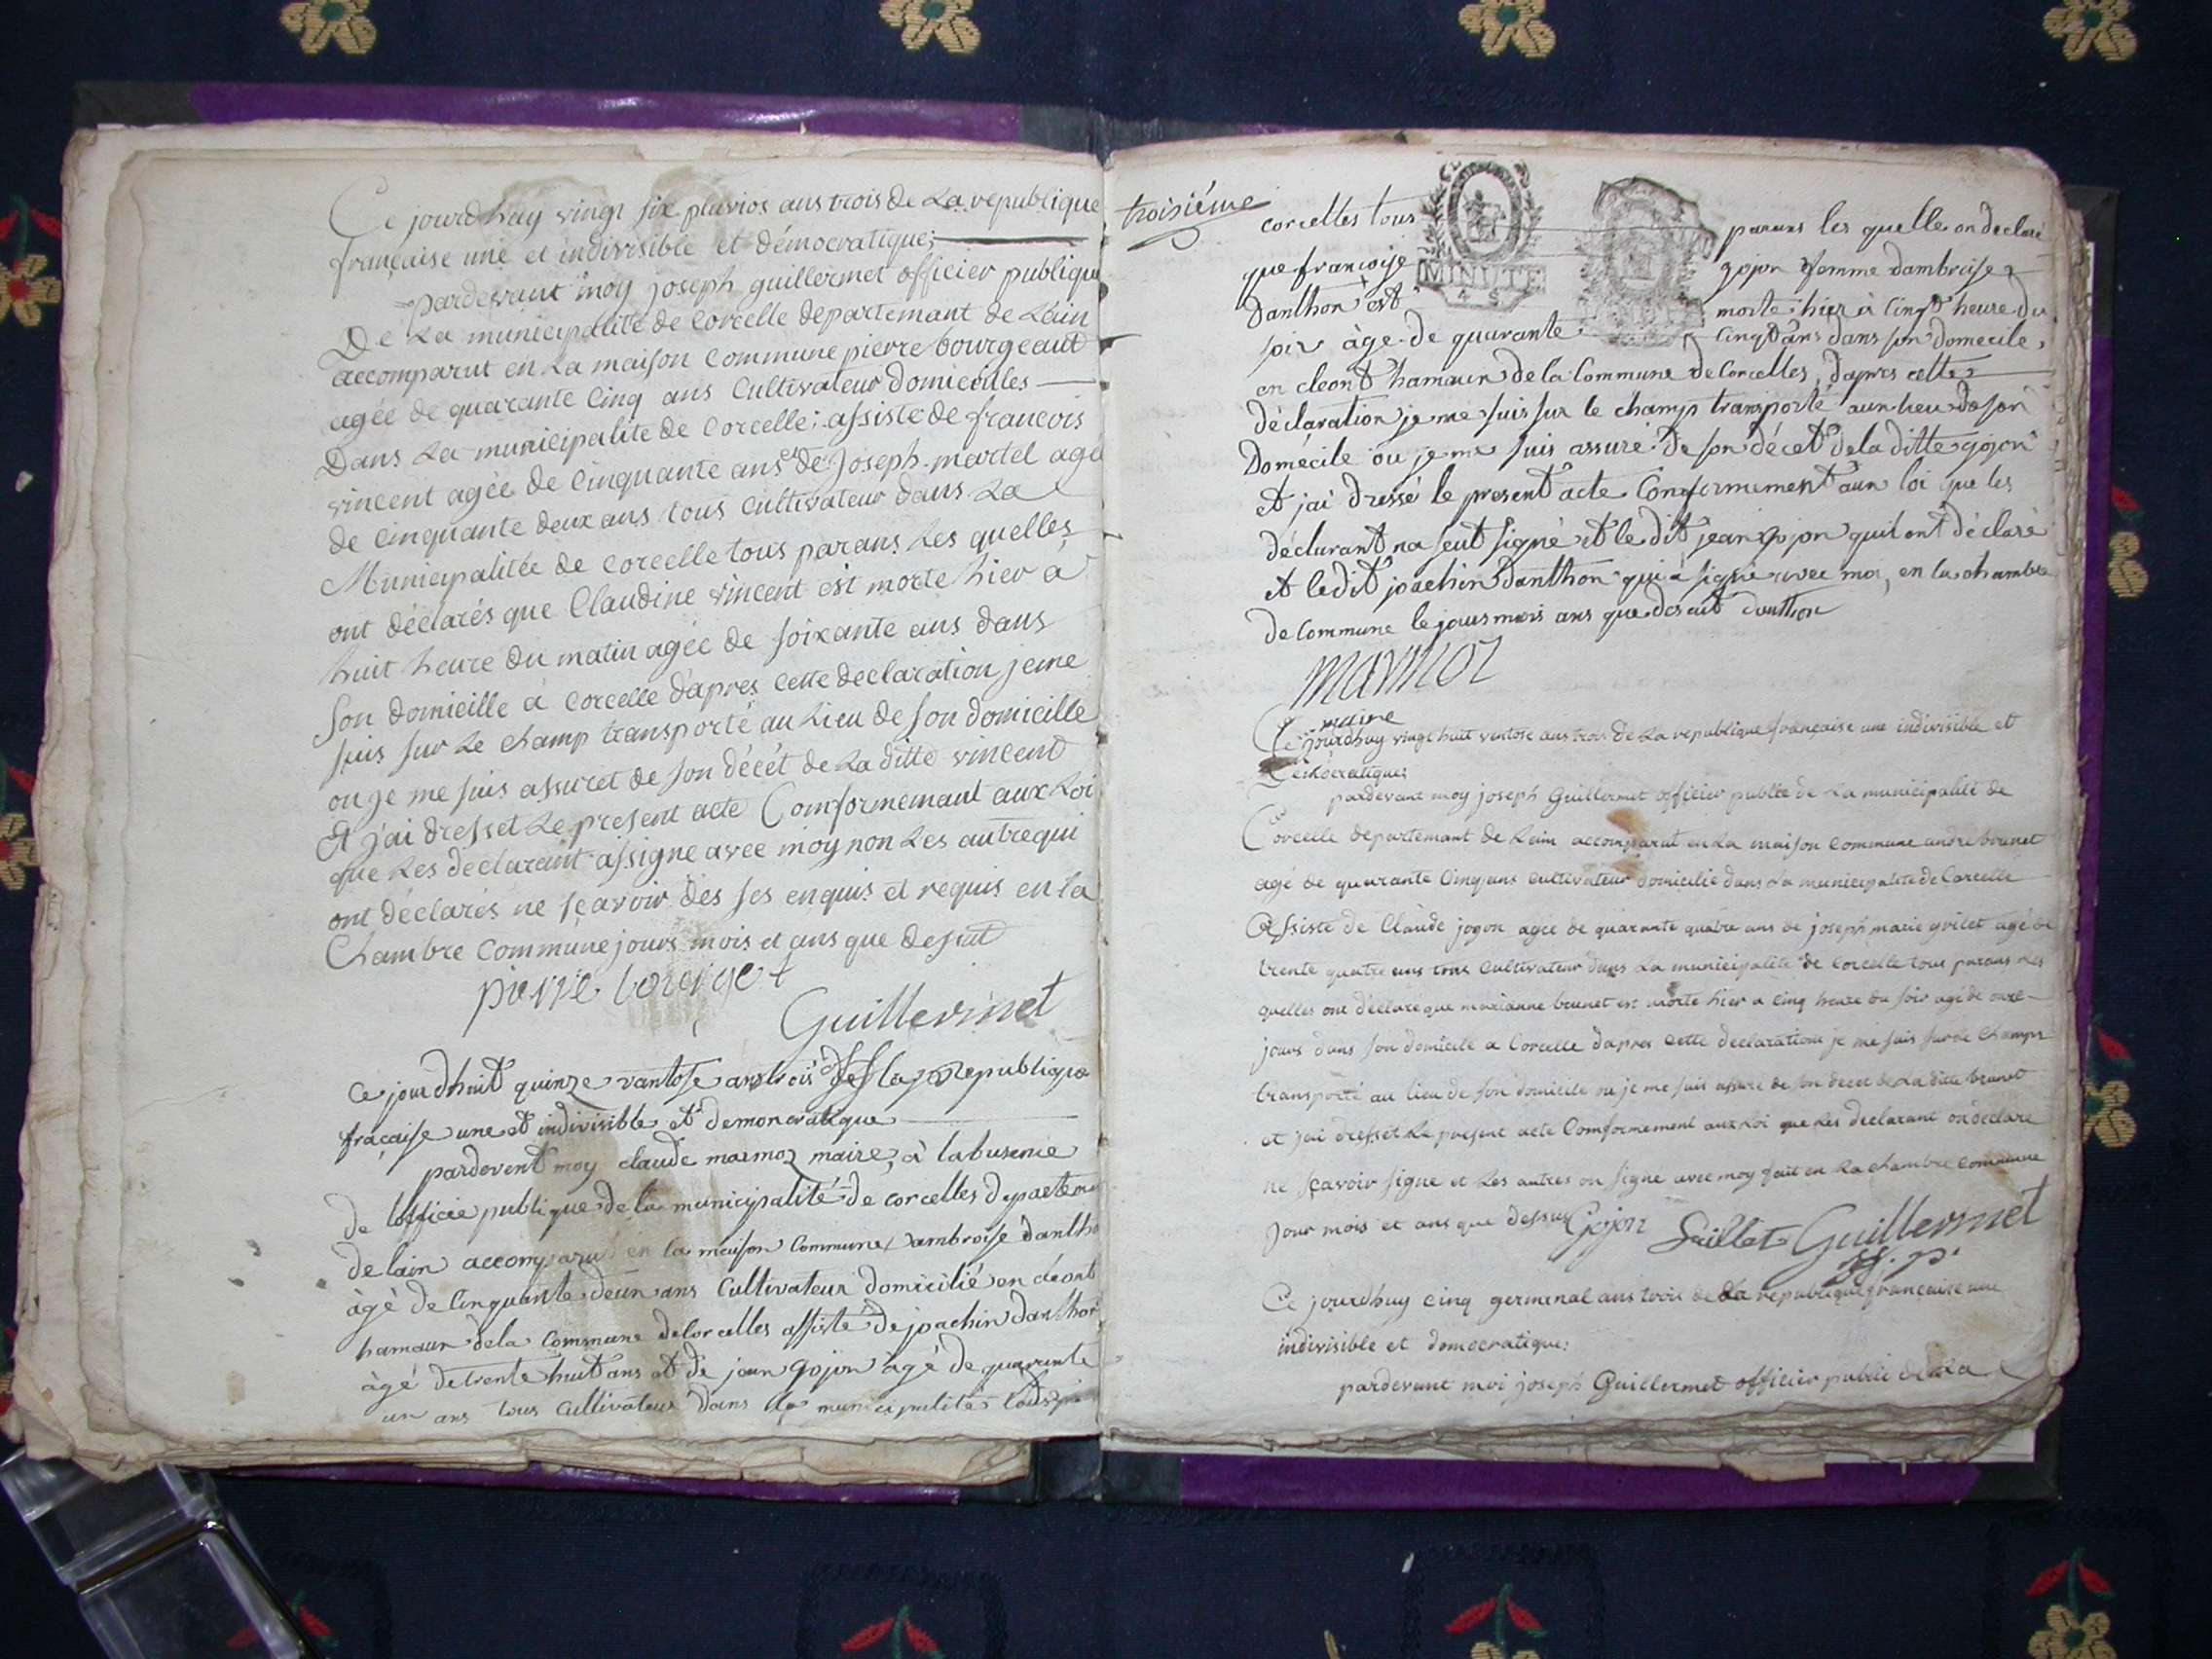 Ce jourdhuy vingt six pluvios ans trois de La republique
française une et indivisible et démocratique;
pardevant moy joseph guillermet officier publique
De La municipalité de Corcelle departemant de Lain
accomparut en La maison Commune pierre bourgeaut
agée de quarante Cinq ans Cultivateur domicilles
Dans La municipalite de Corcelle; assiste de francois
vincent agée de Cinquante ans et de Joseph martel agé
de Cinquante deux ans tous Cultivateur dans La
Municipalitée de Corcelle tous parans Les quelles
ont déclarés que Claudine vincent est morte hier à
huit heure du matin agée de soixante ans dans
son domicille à Corcelle dapres cette declaration je me
suis sur Le champ transporté au Lieu de son domicille
ou je me suis assuret de son décét de La ditte vincent
Et j'ai dresset Le present acte Conformemant aux Loi
que Les declarant assigne avec moy non Les autre qui
ont déclarés ne sçavoir des ses enquis et requis en La
Chambre Commune jours mois et ans que dessut
pierre borerget
Guillermet
Ce jourdhuit quinze vantose ans trois des la Republique
fracaise une et indivisible et demoncratique
pardevent moy claude marmoz maire, à labusence
de lofficie publique de la municipalité de corcelles departeme
de lain accomparut en la maison Commune, dambroise dantho
âgé de Cinquante deun ans Cultivateur domicilié en cleont
hamaux dela Commune de Corcelles assisté de joachin danthon
âgé de trente huit ans et de jean gojon âgé de quarente
un ans tous Cultivateur dans la municipalité
troisiéme
corcelles tous parans les quelle on declaré
que françoise gojon femme dambroise
Danthon est morte hier à Cinqt heure du
soir âge de quarante Cinqt ans dans son domecile,
en cleont hamaux de la Commune de Corcelles, dapres cette
déclaration je me suis sur le champ transporté aux lieu de son
Domécile ou je me suis assuré de son décet de la ditte gojon
et jai dressé le present acte Conformement aux loi que les
déclarant na seut signé et le dit jean gojon quil ont déclaré
et le dit joachin danthon qui à signé avec moi, en la chambre
de Commune le jours mois ans que desut danthon
MINUTE
4 S
marmoz
maire
Ce jourdhuy vingt huit ventose ans trois de La republique française une indivisible et
Democratique;
pardevant moy joseph Guillermet officier public de La municipalité de
Corcelle departemant de Lain accomparut en La maison Commune andre brunet
agé de quarante Cinq ans Cultivateur domicilié dans La municipalite de Corcelle
Assiste de Claude jogon agée de quarante quatre ans de joseph marie goilet agé de
trente quatre ans tous Cultivateur dans La municipalite de Corcelle tous parans Les
quelles ont déclare que marianne brunet est morte hier a Cinq heure du soir agé de onze
jours dans son domicile a Corcelle dapres Cette declaration je me suis sur Le Champs
transporté au lieu de son domicile ou je me suis assure de son decet de La ditte brunet
et jai dresset Le present acte Conformement aux Loi que Les declarant on declare
ne sçavoir signe et Les autres on signe avec moy fait en La chambre Commune
Jour mois et ans que dessus Gojon Guillermet
Ce jourdhuy cinq germinal ans trois de La republique française une
indivisible et domocratique;
pardevant moi joseph Guillermet officier public de La